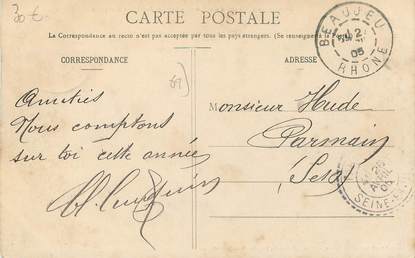 30 €
CARTE POSTALE
La Correspondance au recto n'est pas acceptée par tous les pays étrangers. (Se renseigner
CORRESPONDANCE
ADRESSE
BEAUJEU
RHONE
05
Amitiés
Nous comptons
sur toi cette année
Monsieur Hude
Parmain
SEINE